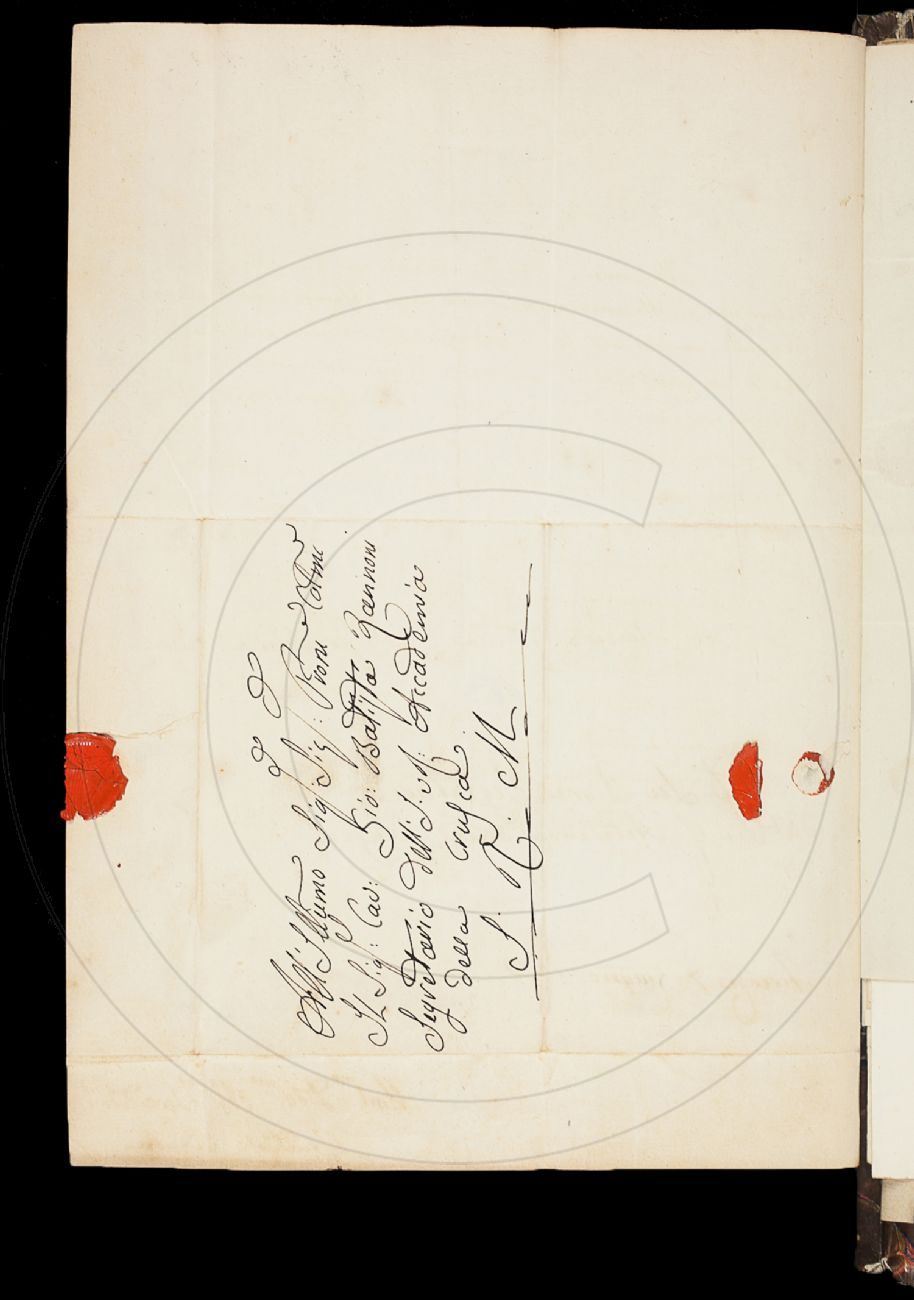 All' Ill̃umo Sig: Sig: Pr̃one Col̃mo
Il Sig: Cav: Gio: Batista Zannoni
Segretario dell' I. R. Accademia
della Crusca
S. R. M.